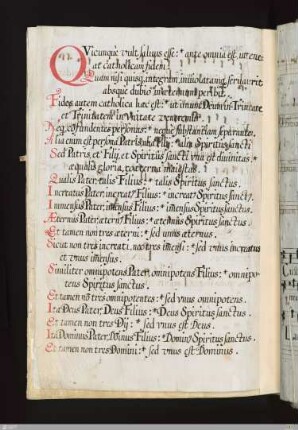 QVicunque vult salvus esse: * ante omnia est, ut tene-
at catholicam fidem.
Quam nisi quisq; integram inviolatamq; servaverit
absque dubio in æternum peribit.
Fides autem catholica hæc est: * ut unum Deum in Trinitate
et Trinitatem in Unitate veneremur.
Neq; confundentes personas: * neque substantiam separantes.
Alia enim est persona Patris alia Filij: * alia Spiritus sancti
Sed Patris, et Filij, et Spiritus sancti una est divinitas: *
æqualis gloria, coæterna maiestas.
Qualis Pater, talis Filius: * talis Spiritus sanctus.
Increatus Pater, increat9 Filius: * increat9 Spiritus sanct9.
Immensus Pater, imensus Filius: * imensus Spiritus sanctus.
Æternus Pater, ætern9 Filius: * æternus Spiritus sanctus.
Et tamen non tres æterni: * sed unus æternus.
Sicut non tres increati, nec tres imensi: * sed vnus increatus
et vnus imensus.
Similiter omnipotens Pater, omnipotens Filius: * omnipo-
tens Spiritus sanctus.
Et tamen non tres omnipotentes: * sed vnus omnipotens.
Ita Deus Pater, Deus Filius: * Deus Spiritus sanctus.
Et tamen non tres Dij: * sed vnus est Deus.
Ita Dominus Pater, Dominus Filius: * Domin9 Spiritus sanctus.
Et tamen non tres Domini: * sed vnus est Dominus.